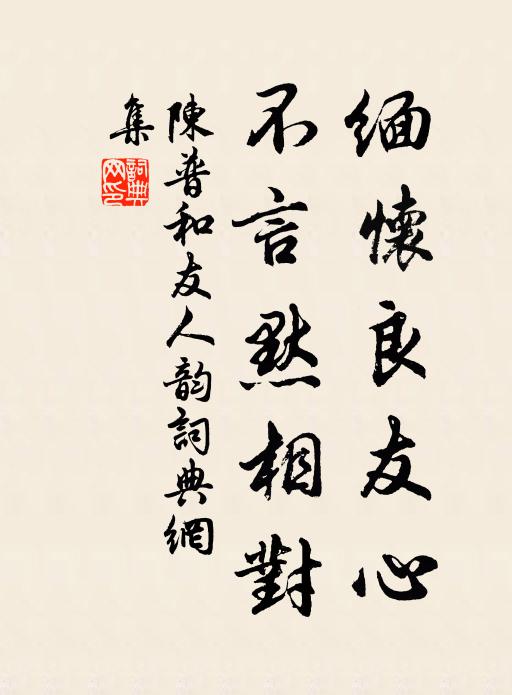 緬懷良友心
不言默相對
陳普和友人韵詞典網
集
詞典網印